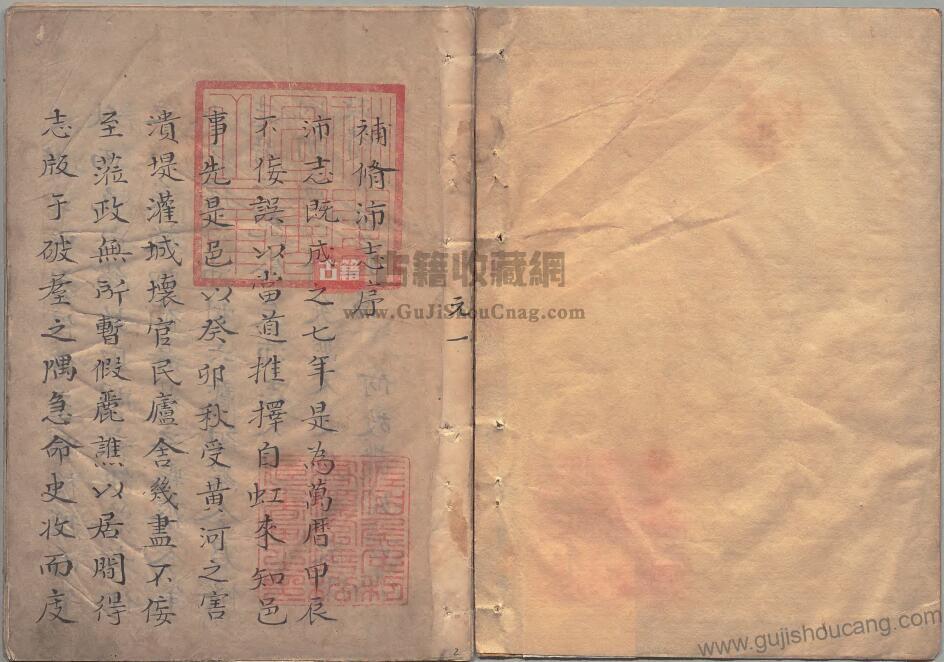 補脩沛志序
沛志既成之七年是為萬曆甲辰
不佞誤以當道推擇自虹來知邑
事先是邑以癸卯秋受黃河之害
潰堤灌城壞官民廬舍幾盡不佞
至蒞政無所暫假麗譙以居間得
志版于破屋之隅急命史收而庋
元一
古籍
古籍收藏網
www.GuJiShouCnag.com
www.gujishducang.com
2